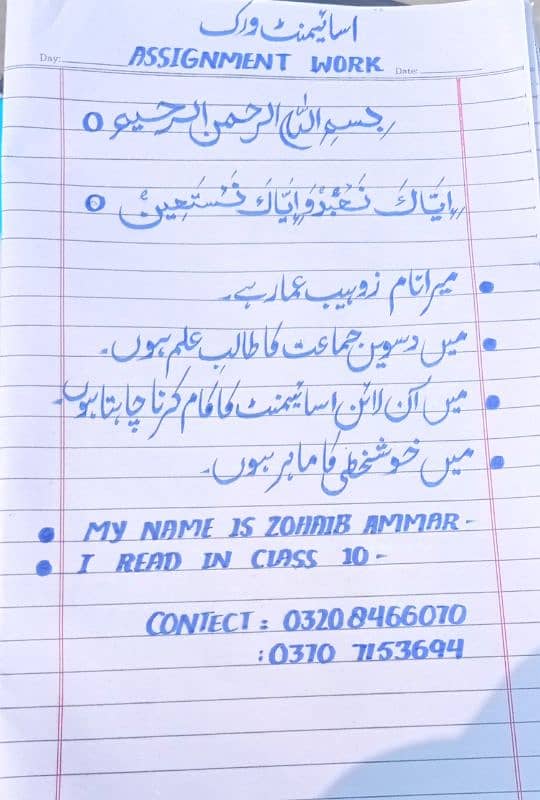 اسائیمنٹ ورک
Day:
ASSIGNMENT WORK
Date:
بسم اللہ الرحمن الرحیم O
اِیَّاکَ نَعْبُدُ وَ اِیَّاکَ نَسْتَعِیْنُ O
• میرا نام زوہیب عمار ہے۔
• میں دسویں جماعت کا طالب علم ہوں۔
• میں آن لائن اسائیمنٹ کا کام کرنا چاہتا ہوں۔
• میں خوشخطی کا ماہر ہوں۔
• MY NAME IS ZOHAIB AMMAR-
• I READ IN CLASS 10-
CONTECT: 0320 8466070
:0370 7153694